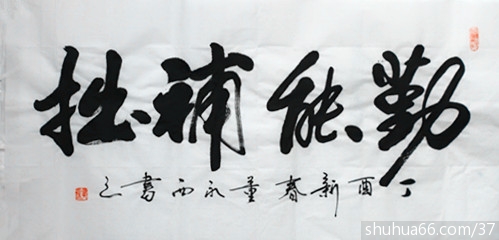 勤能補拙
丁酉新春董永西書
shuhua66.com/37